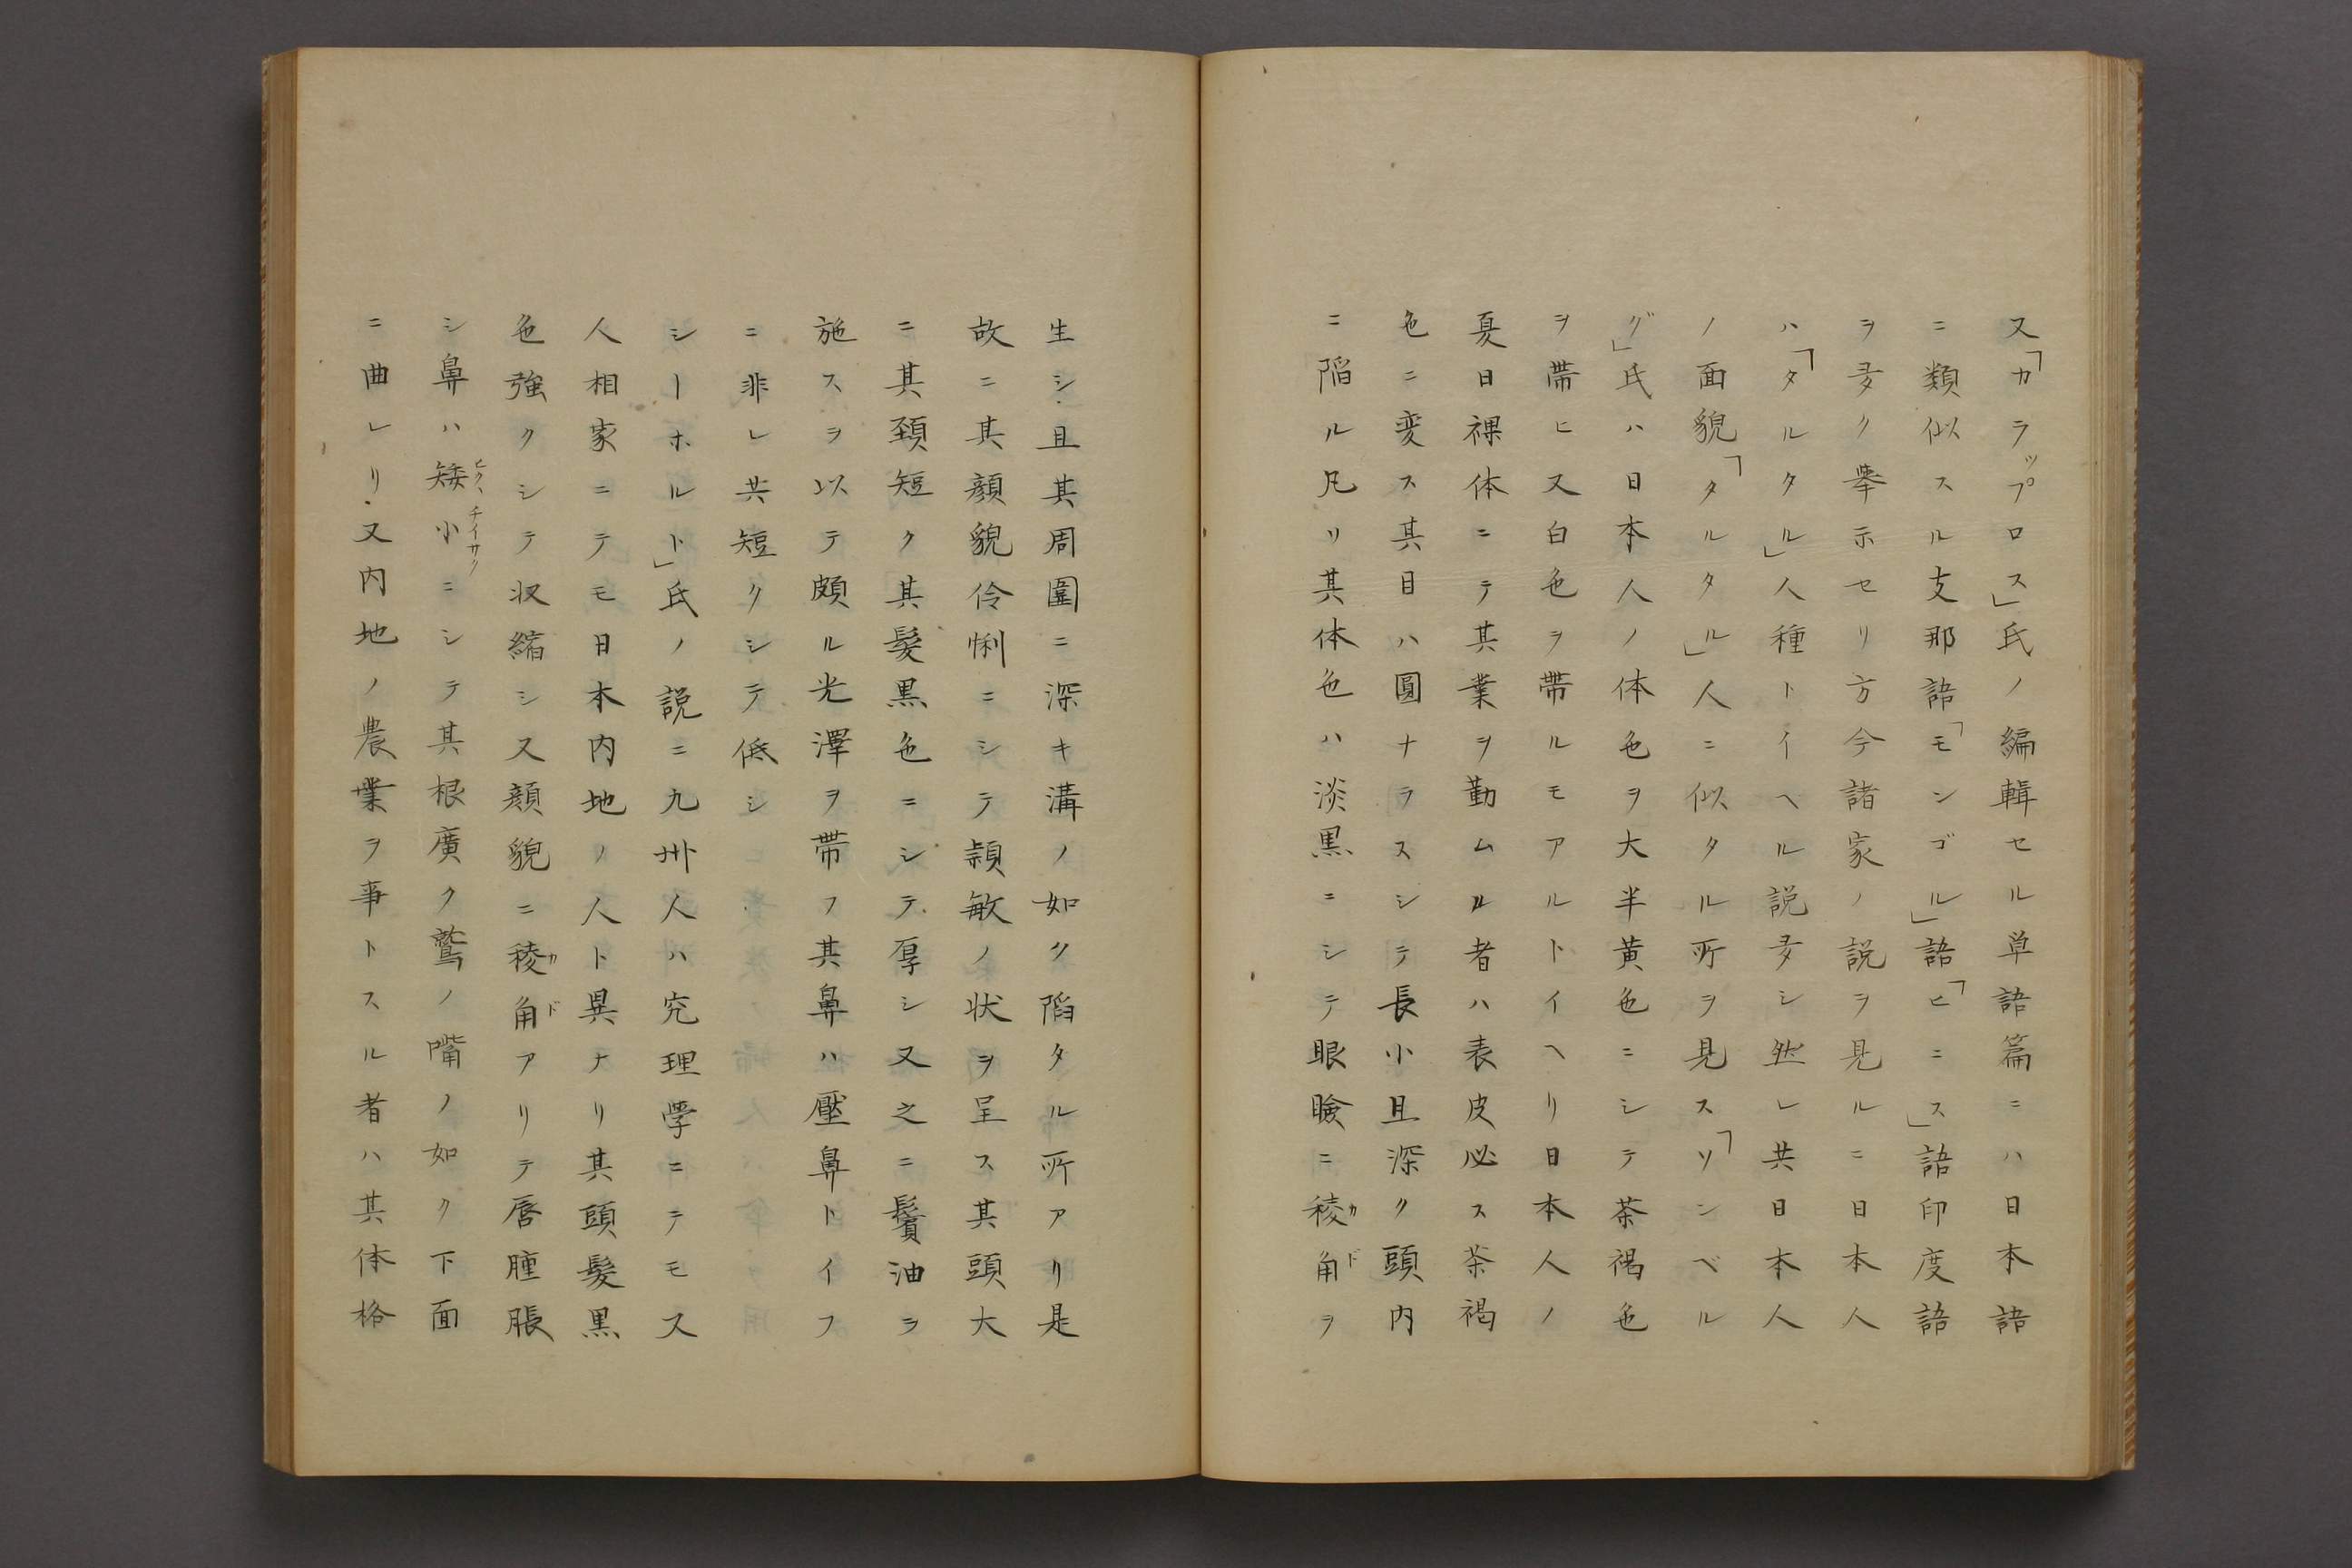 又「カラップロス」氏ノ編輯セル草語篇ニハ日本語
ニ類似スル支那語「モンゴル」語「ヒニス」語印度語
ヲ多ク挙示セリ方今諸家ノ説ヲ見ルニ日本人
ハ「タルタル」人種トイヘル説多シ然レ共日本人
ノ面貌「タルタル」人ニ似タル所ヲ見ス「ソンベル
グ」氏ハ日本人ノ体色ヲ大半黄色ニシテ茶褐色
ヲ帯ヒ又白色ヲ帯ルモアルトイヘリ日本人ノ
夏日裸体ニテ其業ヲ勤ムル者ハ表皮必ス茶褐
色ニ変ス其目ハ圓ナラスシテ長小且深ク頭内
ニ陥ル凡リ其体色ハ淡黒ニシテ眼瞼ニ稜角カドヲ
生シ且其周圍ニ深キ溝ノ如ク陷タル所アリ是
故ニ其顔貌伶悧ニシテ頴敏ノ状ヲ呈ス其頭大
ニ其頚短ク其髪黒色ニシテ厚シ又之ニ鬢油ヲ
施スヲ以テ頗ル光澤ヲ帯フ其鼻ハ壓鼻トイフ
ニ非レ共短クシテ低シ
シーホルト」氏ノ説ニ九州人ハ究理學ニテモス
人相家ニテモ日本内地ノ人ト異ナリ其頭髪黒
色強クシテ収縮シ又顔貌ニ稜角カドアリテ唇腫脹
シ鼻ハ矮小ヒクヽチイサクニシテ其根廣ク鷲ノ嘴ノ如ク下面
ニ曲レリ又内地ノ農業ヲ事トスル者ハ其体格